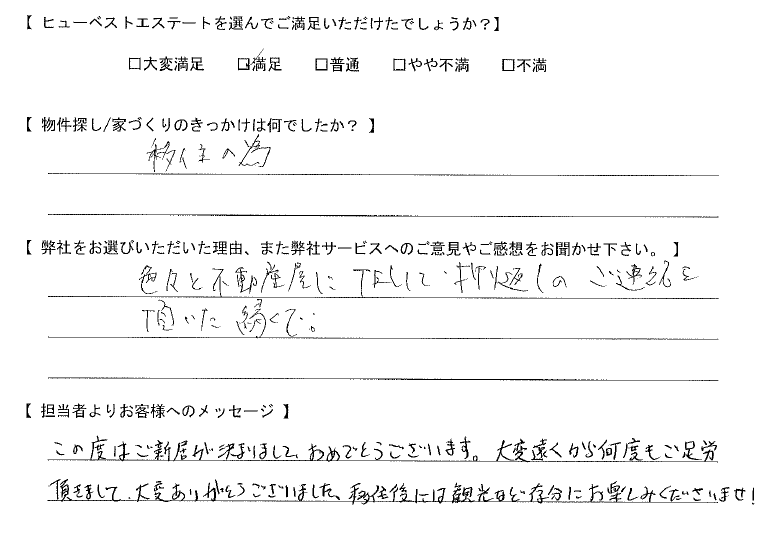 【 ヒューベストエステートを選んでご満足いただけたでしょうか？】
□大変満足 ☑満足 □普通 □やや不満 □不満
【 物件探し/家づくりのきっかけは何でしたか？ 】
移住の為
【 弊社をお選びいただいた理由、また弊社サービスへのご意見やご感想をお聞かせ下さい。 】
色々と不動産屋にTELして、折り返しのご連絡を
頂いた縁で。
【 担当者よりお客様へのメッセージ 】
この度はご新居が決まりまして、おめでとうございます。大変遠くから何度もご足労
頂きまして、大変ありがとうございました、移住後には観光など存分にお楽しみくださいませ！